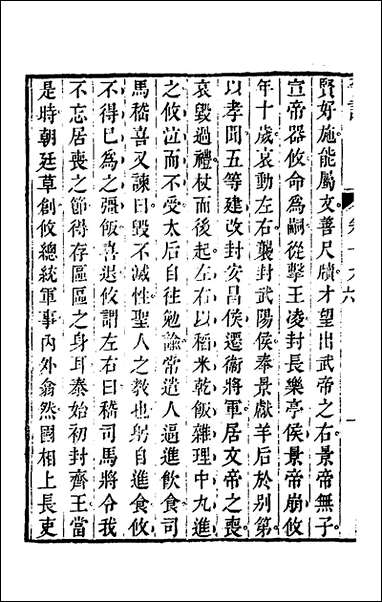 賢好施能屬文善尺牘才望出武帝之右景帝無子
宣帝器攸命為嗣從擊王凌封長樂亭侯景帝崩攸
年十歲哀動左右襲封武陽侯奉景獻羊后於別第
以孝聞五等建改封安昌侯遷衞將軍居文帝之喪
哀毀過禮杖而後起左右以稻米乾飯雜理中丸進
之攸泣而不受太后自往勉諭常遣人逼進飲食司
馬嵇喜又諫曰毀不滅性聖人之教也躬自進食攸
不得已為之彊飯喜退攸謂左右曰嵇司馬將令我
不忘居喪之節得存區區之身耳泰始初封齊王當
是時朝廷草創攸總統軍事內外翕然國相上長吏